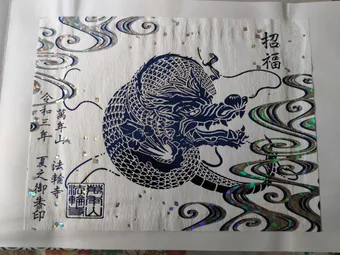 招福
萬年山 法輪寺
令和三年 夏之御書印